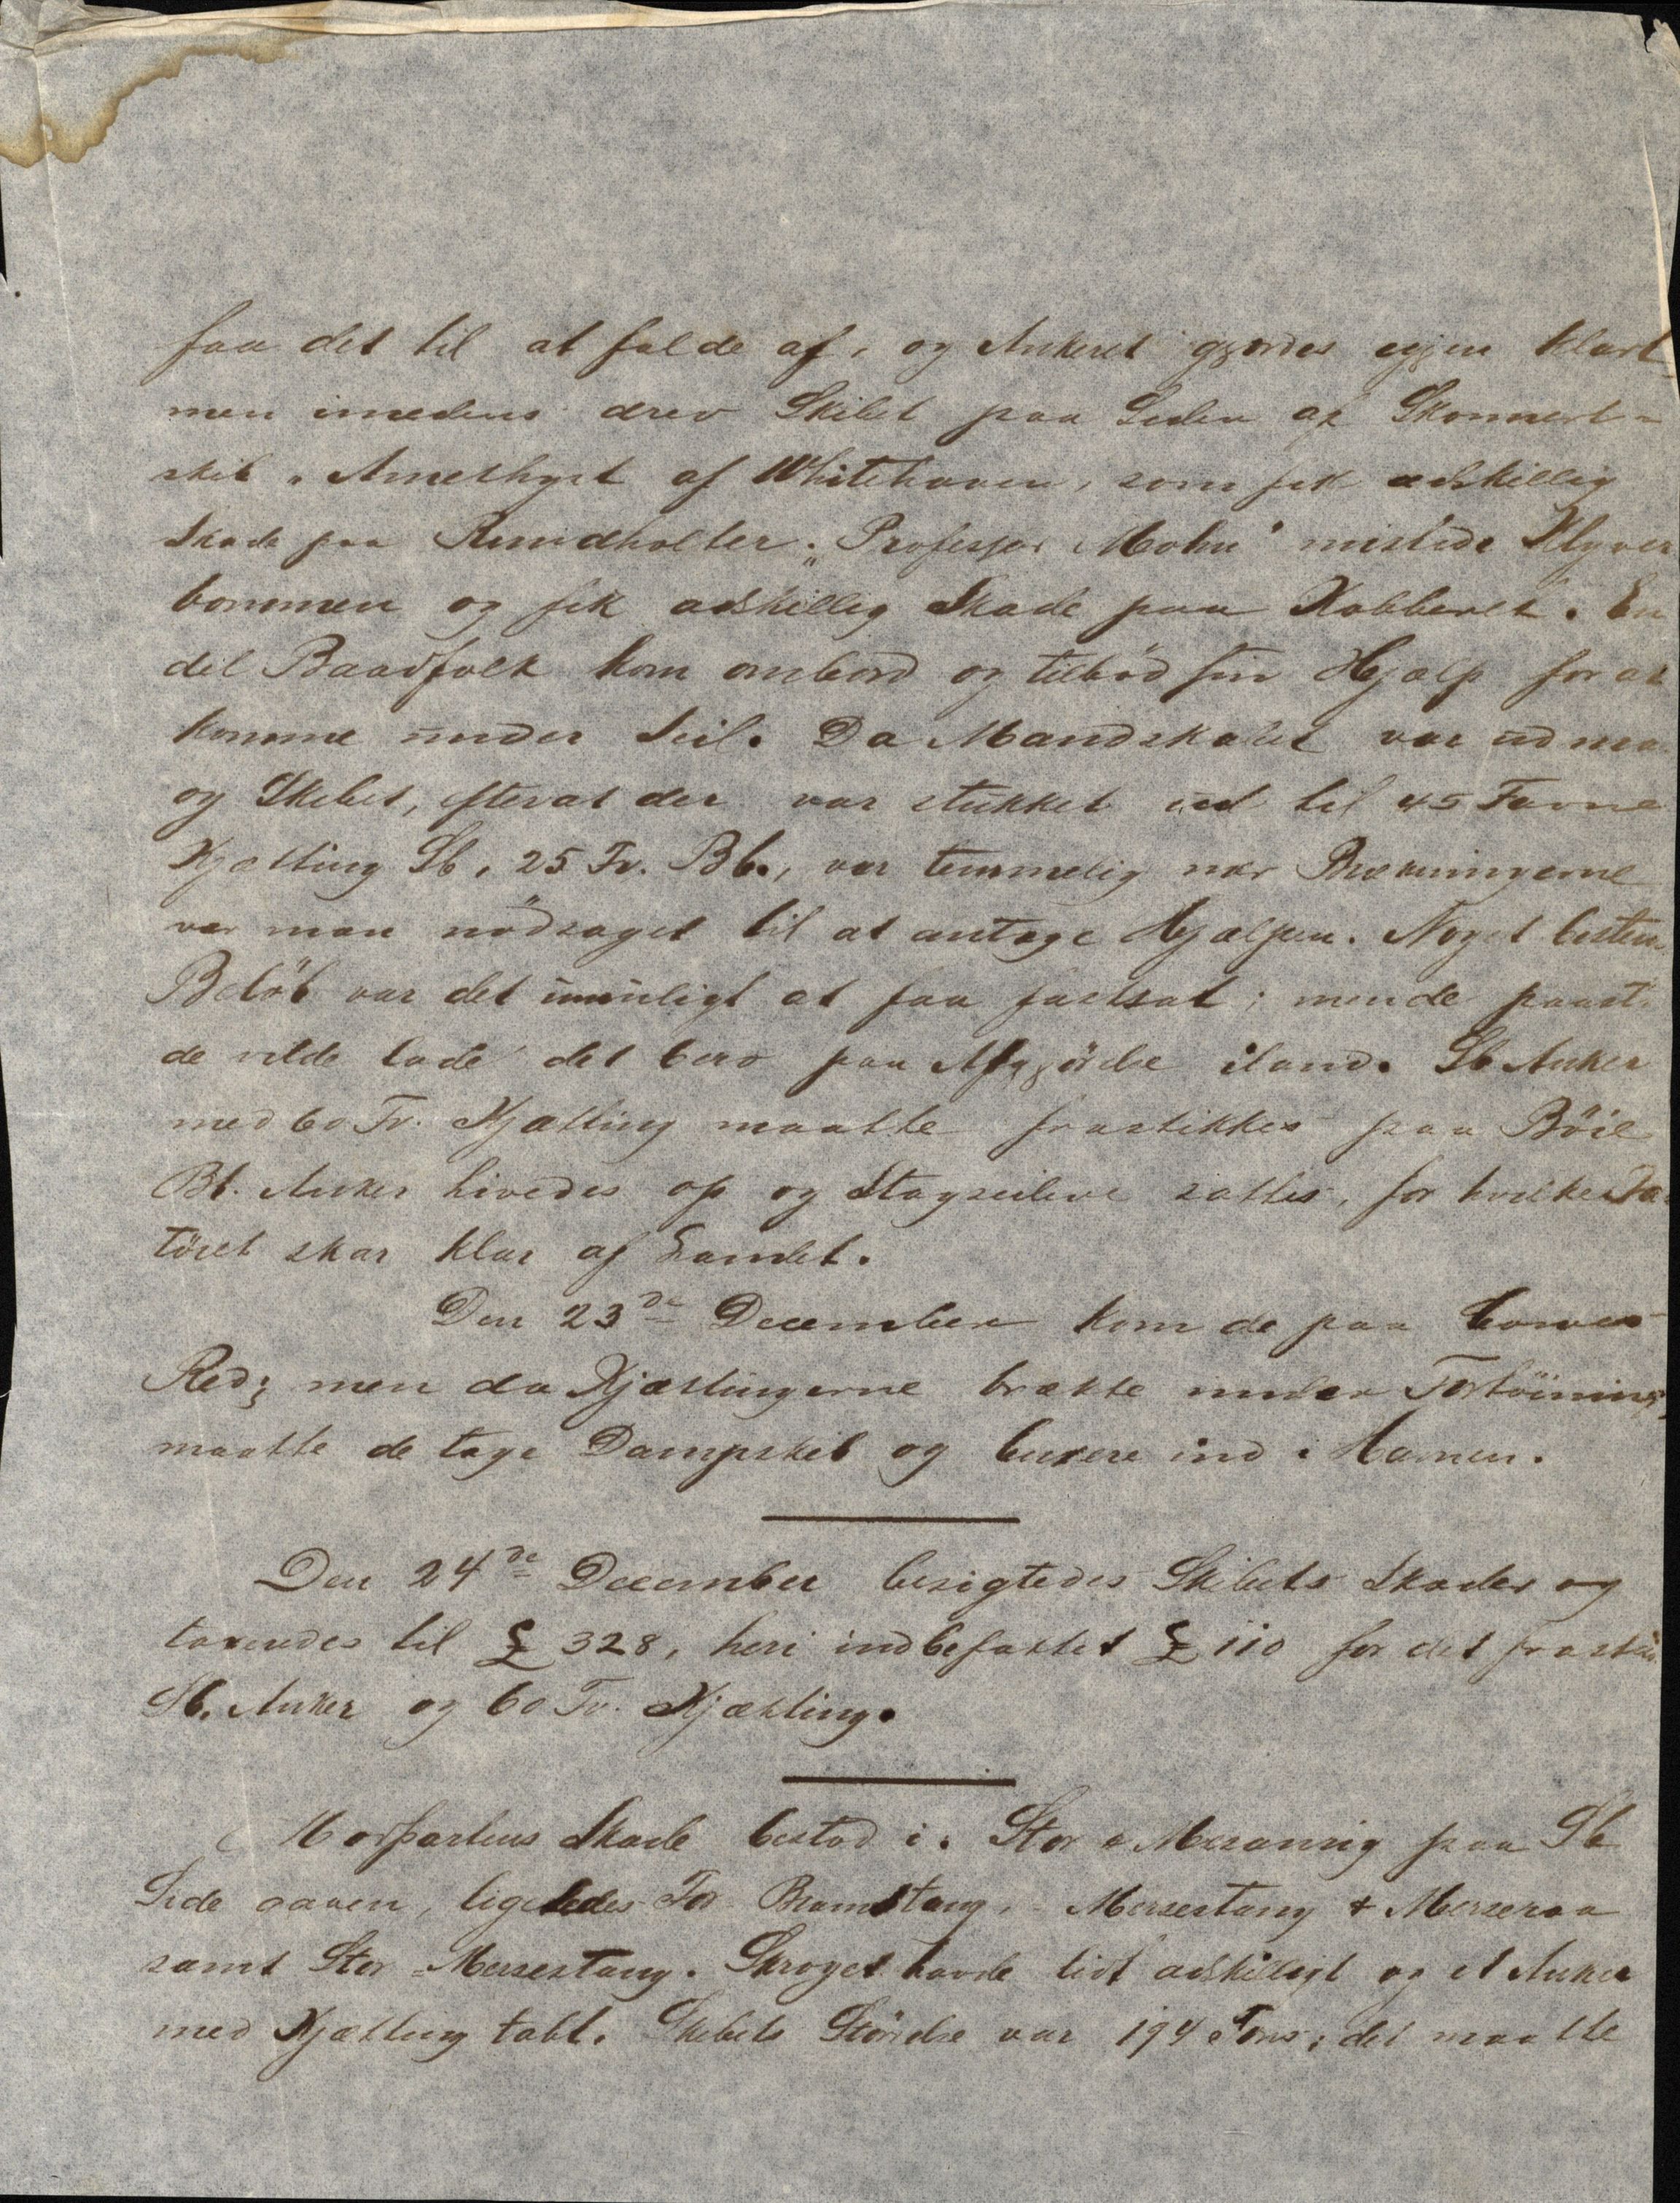 faa det til at falde af, og Ankeret gjordes igjen klart
men imedens drev Skibet paa Siden af Skonnert-
skib "Amethyst af Whitehaven, som fik adskillig
Skade paa Rundholter. "Professor Mohn" mistede Klyver
bommen og fik adskillig Skade paa Kobberet. En
del Baadfolk kom ombord og tilbød sin Hjælp for at
komme under Seil. Da Mandskabet var udma
og Skibet, efterat der var stukket ud til 45 Favne
Kjætting Sb, 25 Fv. Bb., var temmelig nær Brækningerne
var man nödsaget til at antage Hjælpen. Noget bestem
Belöb var det umuligt at faa fastsat; men de paast
de vilde lade det bero paa Afgjörelse iland. Sb Anker
med 60 Fv. Kjætting maatte frastikkes paa Böie
Bb. Anker hivedes op og Stagseilene sattes, for hvilke
töiet skar klar af Landet.
Den 23de December kom de paa Cowes
Red; men da Kjættingerne brække under Fortöining
maatte de tage Dampskib og buxere ind i Havnen.
Den 24de December besigtedes Skibets Skader og
taxeredes til £ 328, heri indbefattet £ 110 for det
Sb. Anker og 60 Fv. Kjætting.
Havpartens Skade bestod i. Stor & Mesanrig paa Sb
Side oaven, ligeledes For Bramstang, - Mersestang & Merseraa
samt Stor-Mersestang. Skroget havde lidt adskilligt og et Anker
med Kjætting tabt. Skibets Störrelse var 194 Tons; det maatte